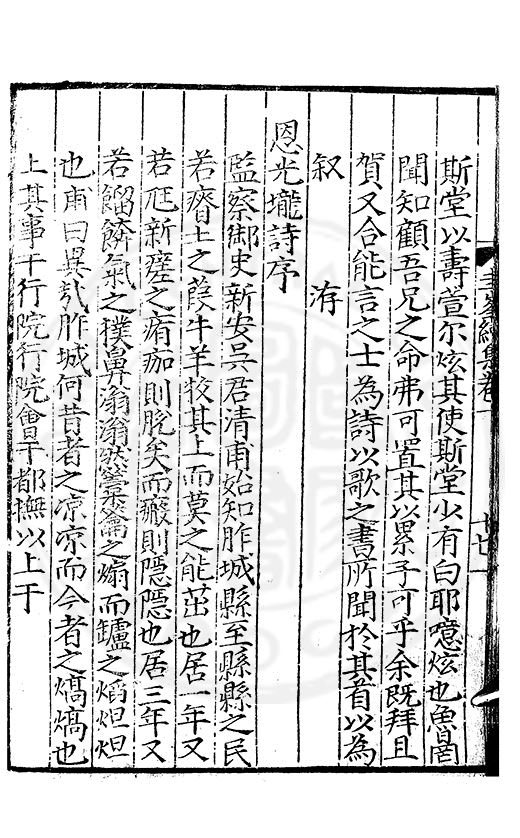 斯堂以壽萱尔炫其使斯堂少有白耶噫炫也魯罔
聞知顧吾兄之命弗可置其以累子可乎余既拜且
賀又合能言之士為詩以歌之書所聞於其首以為
叙 洊
恩光壠詩序
監察御史新安吳君清甫始知胙城縣至縣縣之民
若瘠土之葭牛羊牧其上而莫之能茁也居一年又
若尫新瘥之痏痂則脫矣而瘢則隱隱也居三年又
若餾饙氣之撲鼻滃滃然籥之煽而鑪之熖炟炟
也甫曰異哉胙城何昔者之凉凉而今者之熇熇也
上其事于行院行院會于都撫以上于